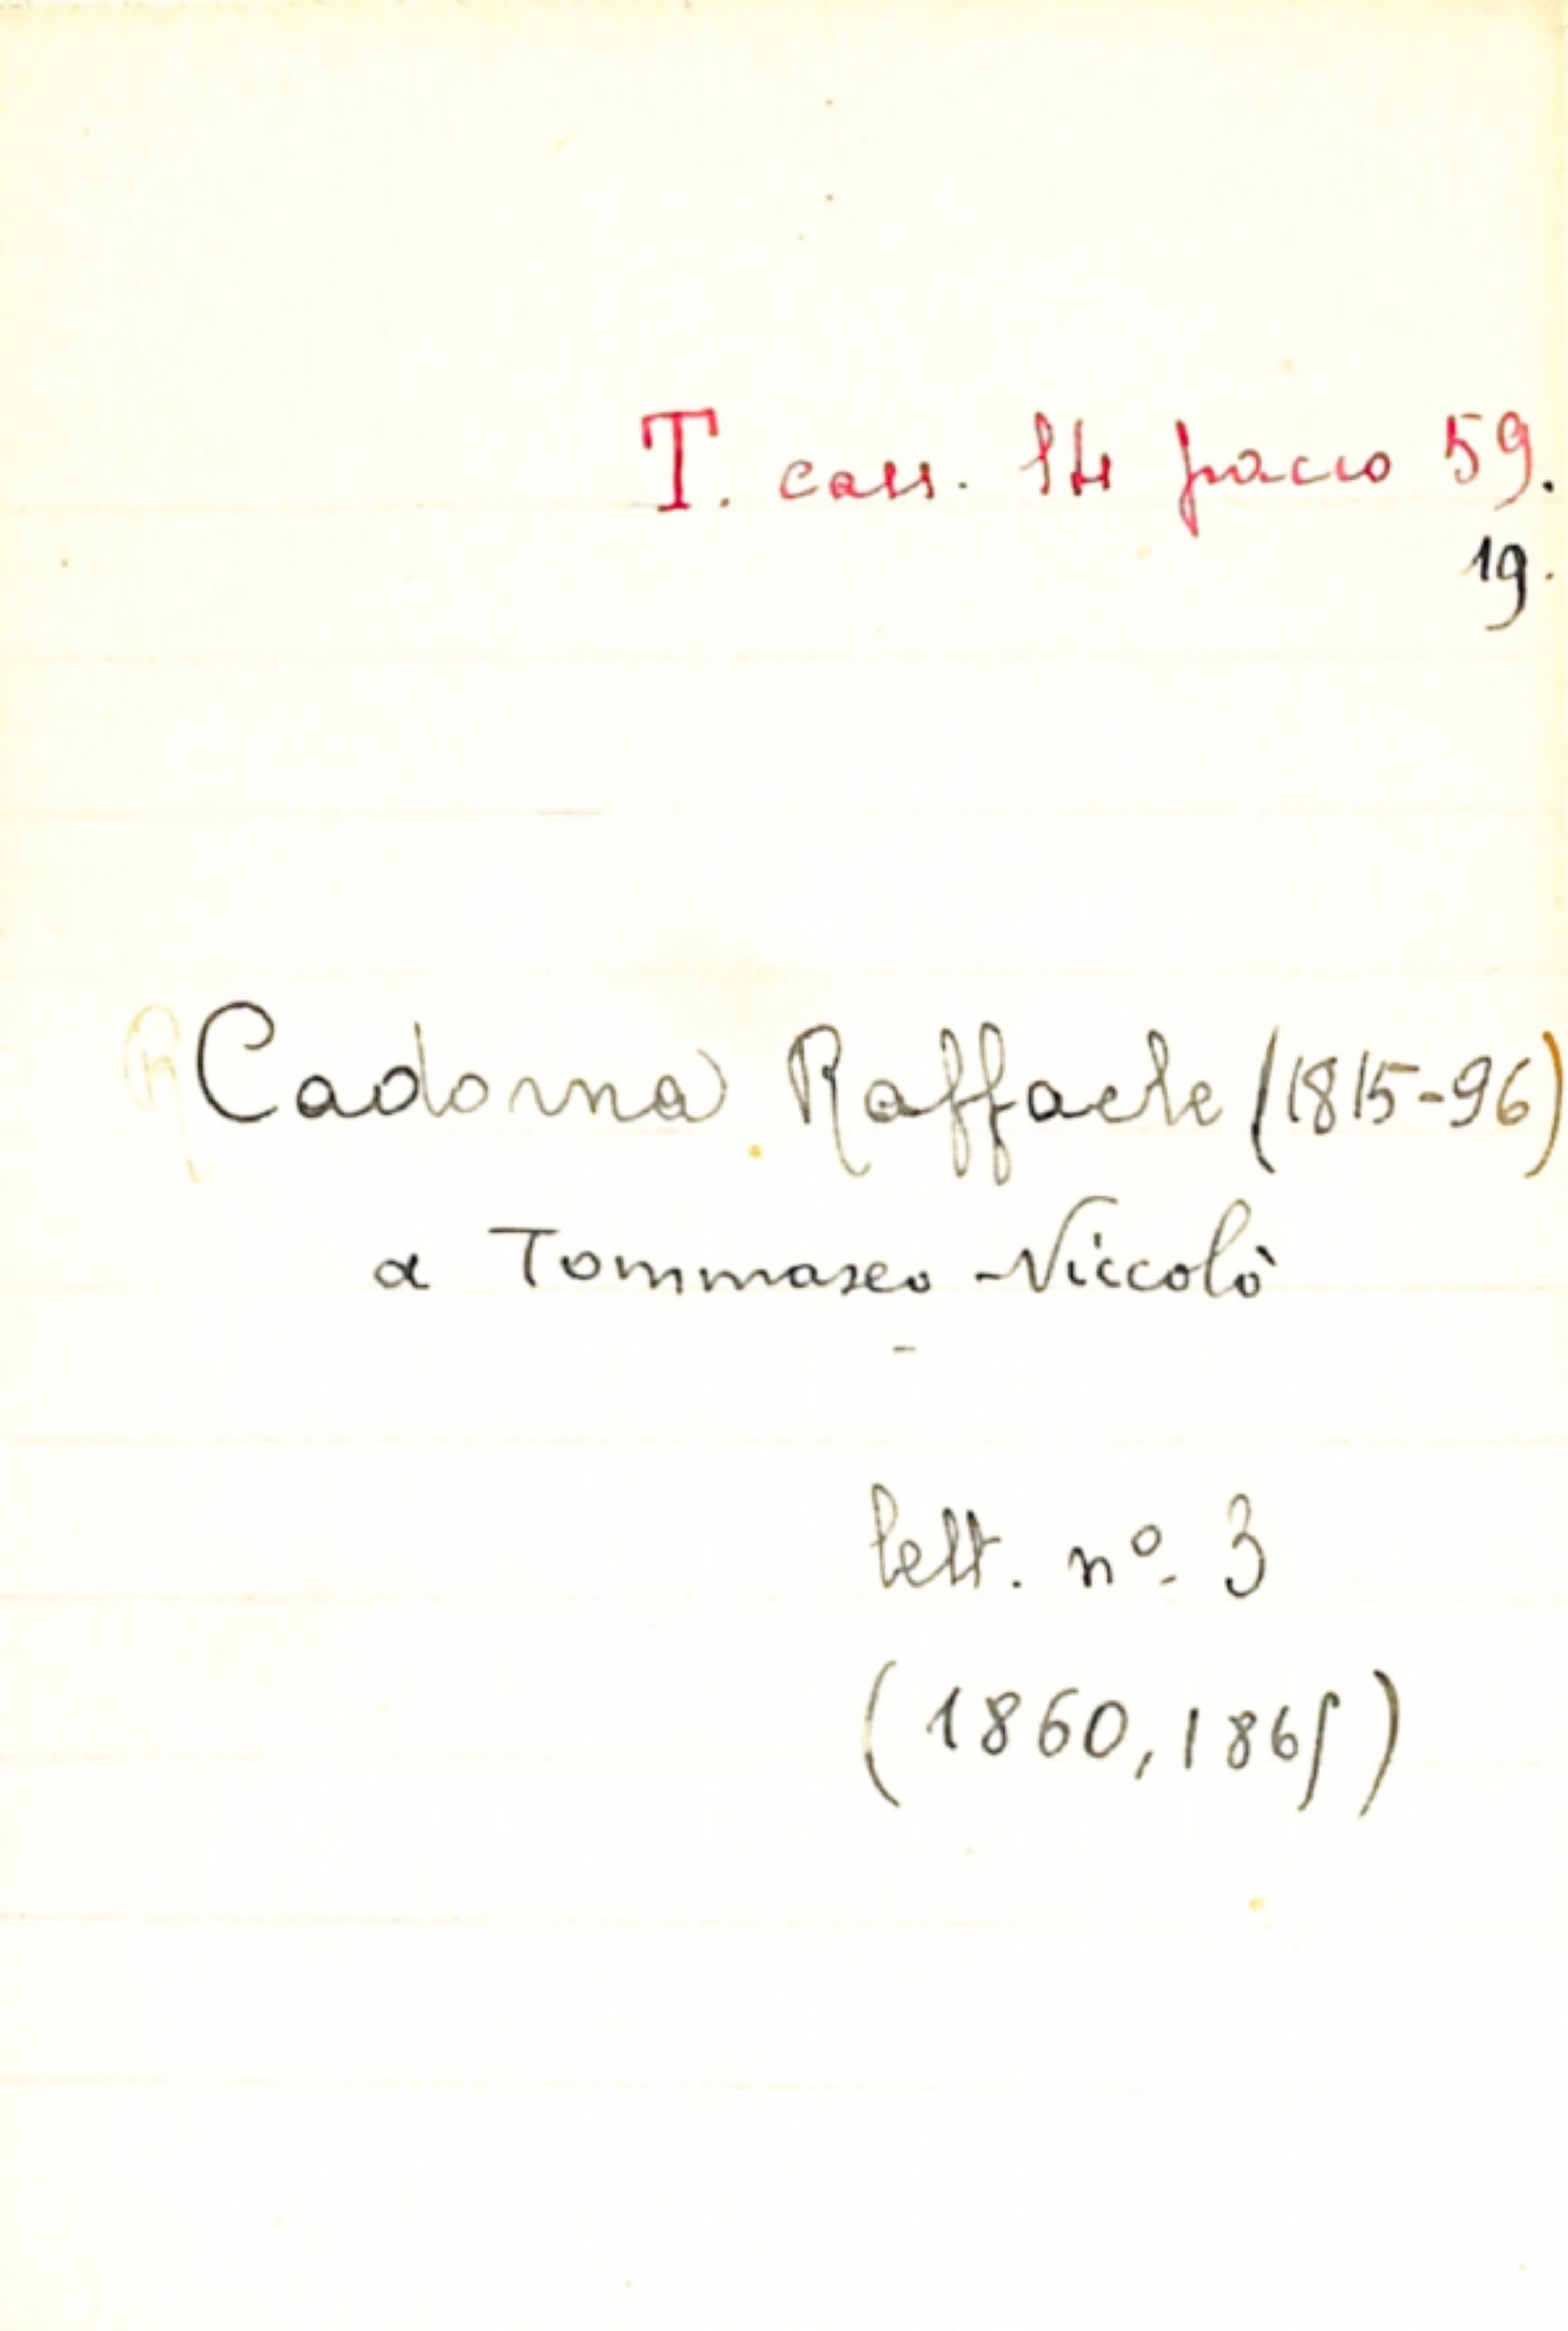 T. cass. 14 pacco 59.
19.
Cadorna Raffaele (1815-96)
a Tommaseo Niccolò
-
lett. nº. 3
(1860, 1861)